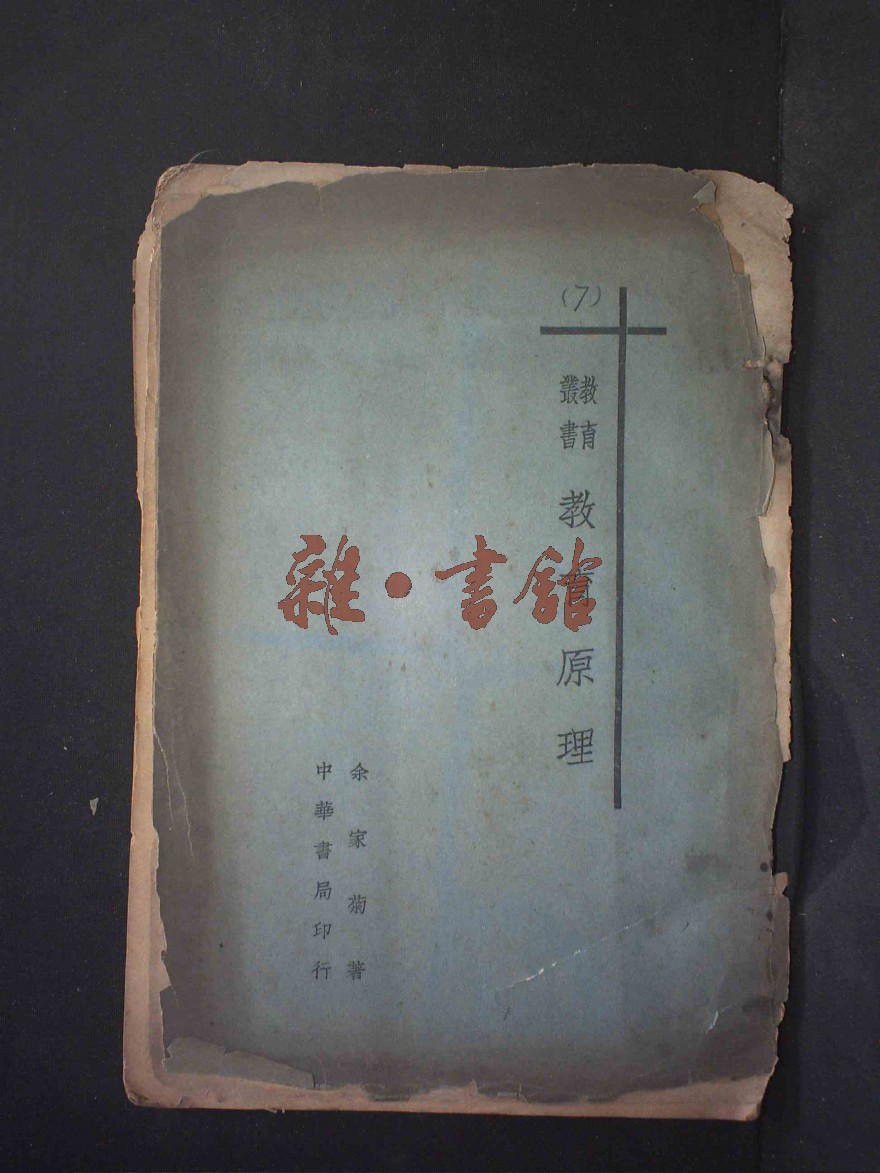 (7)
教育
叢書
教育原理
余家菊著
中華書局印行
雜·書館